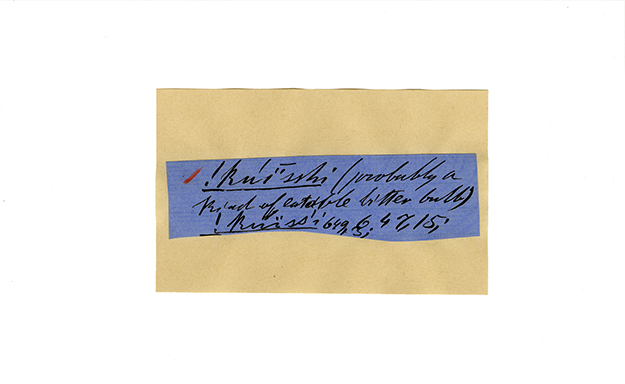 ! kúïsshi (probably a
kind of eatable bitter bulb)
! kúïssi 649, 4 7, 15,